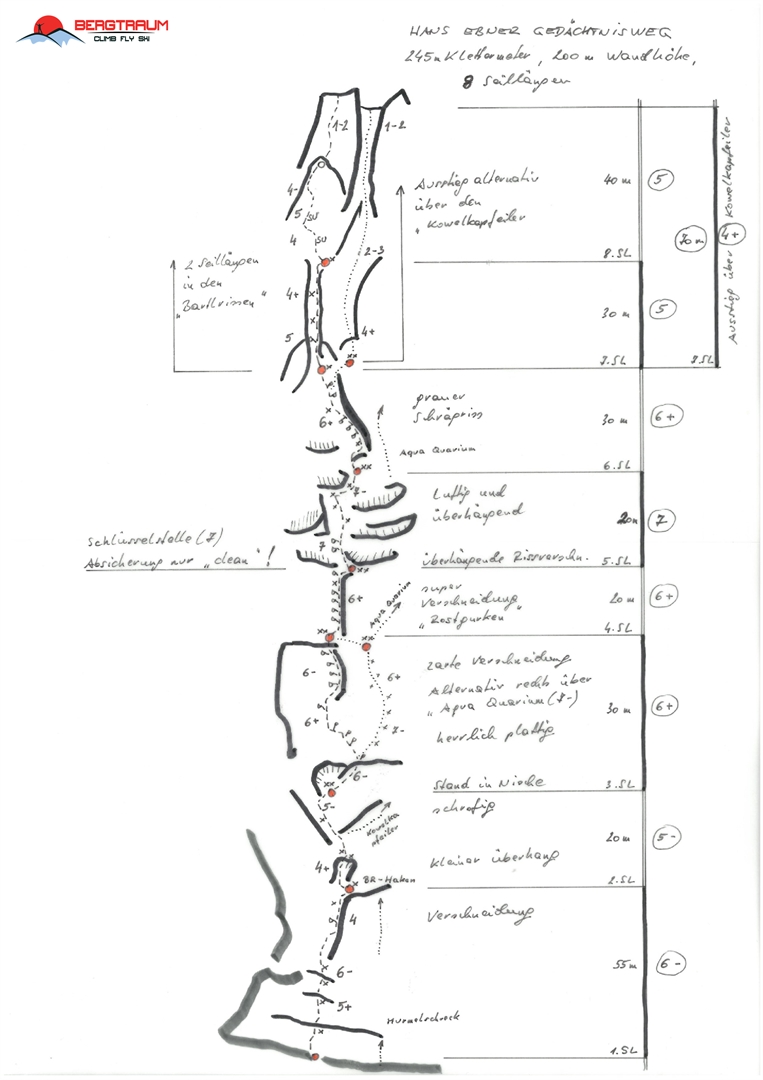 BERGTRAUM
CLIMB FLY SKI
HANS EBNER GEDÄCHTNISWEG
245m Klettermeter, 200m Wandhöhe,
8 Seillängen
1-2
1-2
4-
5
SU
4
SU
Ausstieg alternativ
über den
"Kowelkapfeiler
40 m
5
8.SL
70m
4+
Ausstieg über Kowelkapfeiler
2 Seillängen
in den
"Zartlrissen"
2-3
4+
4+
5
30 m
5
7.SL
7.SL
grauer
Schrägriss
6+
30 m
6+
Aqua Quarium
6.SL
7-
Luftig und
überhängend
20m
7
Schlüsselstelle (7)
Absicherung nur "clean"!
7
überhängende Rissverschn.
5.SL
6+
Aqua Quarium
super
Verschneidung
"Rostgurken"
20m
6+
4.SL
6-
6+
6+
7-
zarte Verschneidung
Alternativ rechts über
"Aqua Quarium (7-)
herrlich plattig
30 m
6+
6-
Stand in Nische
3.SL
5-
Kowelka
pfeiler
schrofig
20m
5-
4+
kleiner Überhang
BR-Haken
2.SL
4
Verschneidung
6-
5+
55m
6-
Hummelschreck
1.SL